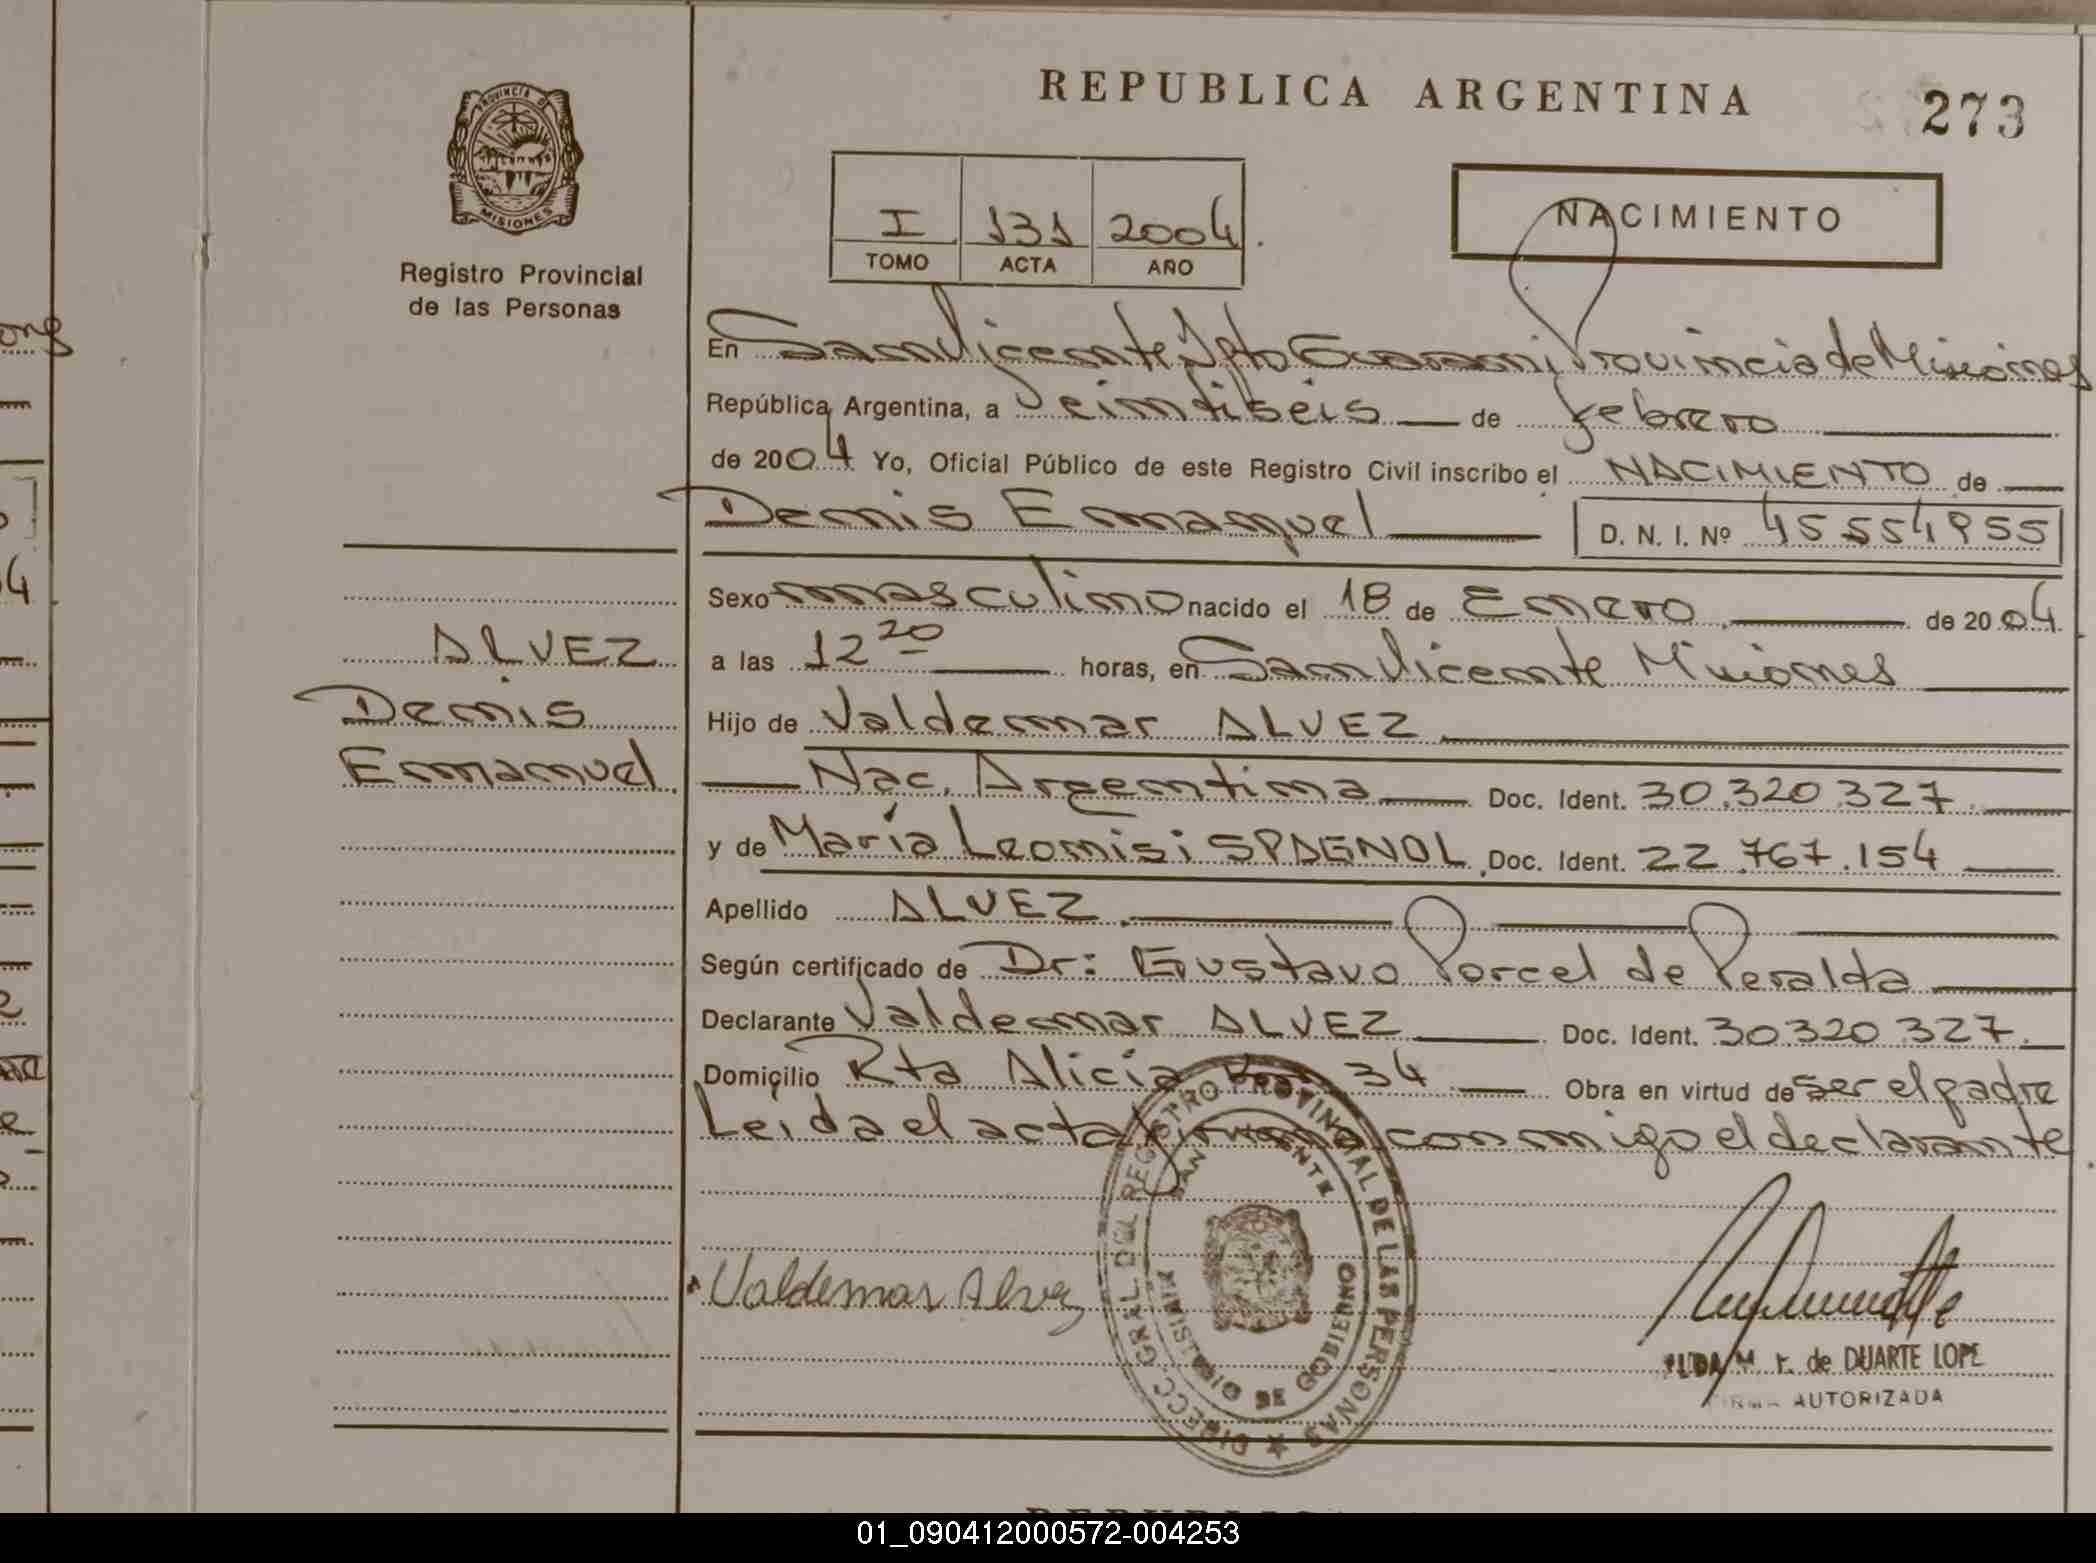 REPUBLICA ARGENTINA
273
PROVINCIA DE
MISIONES
Registro Provincial
de las Personas
I 131 2004
TOMO ACTA AÑO
NACIMIENTO
En San Vicente Dpto Guarani Provincia de Misiones
República Argentina, a Veintiseis de febrero
de 2004 Yo, Oficial Público de este Registro Civil inscribo el NACIMIENTO de
Demis Emmanuel D. N. I. Nº 45554955
Sexo masculino nacido el 18 de Enero de 2004
a las 12 20 horas, en San Vicente Misiones
Hijo de Valdemar ALVEZ
Nac. Argentina Doc. Ident. 30.320.327
y de María Leonisi SPAGNOL Doc. Ident. 22.767.154
Apellido ALVEZ
Según certificado de Dr: Gustavo Porcel de Peralta
Declarante Valdemar ALVEZ Doc. Ident. 30.320.327.
Domicilio Rta Alicia Km 34 Obra en virtud de ser el padre
Leida el acta firma conmigo el declarante
ALVEZ
Demis
Emmanuel
Valdemar Alvez
DIRECC. GRAL DEL REGISTRO PROVINCIAL DE LAS PERSONAS
SAN VICENTE
MINISTERIO DE GOBIERNO
de DUARTE LOPE
FIRMA AUTORIZADA
01_090412000572-004253